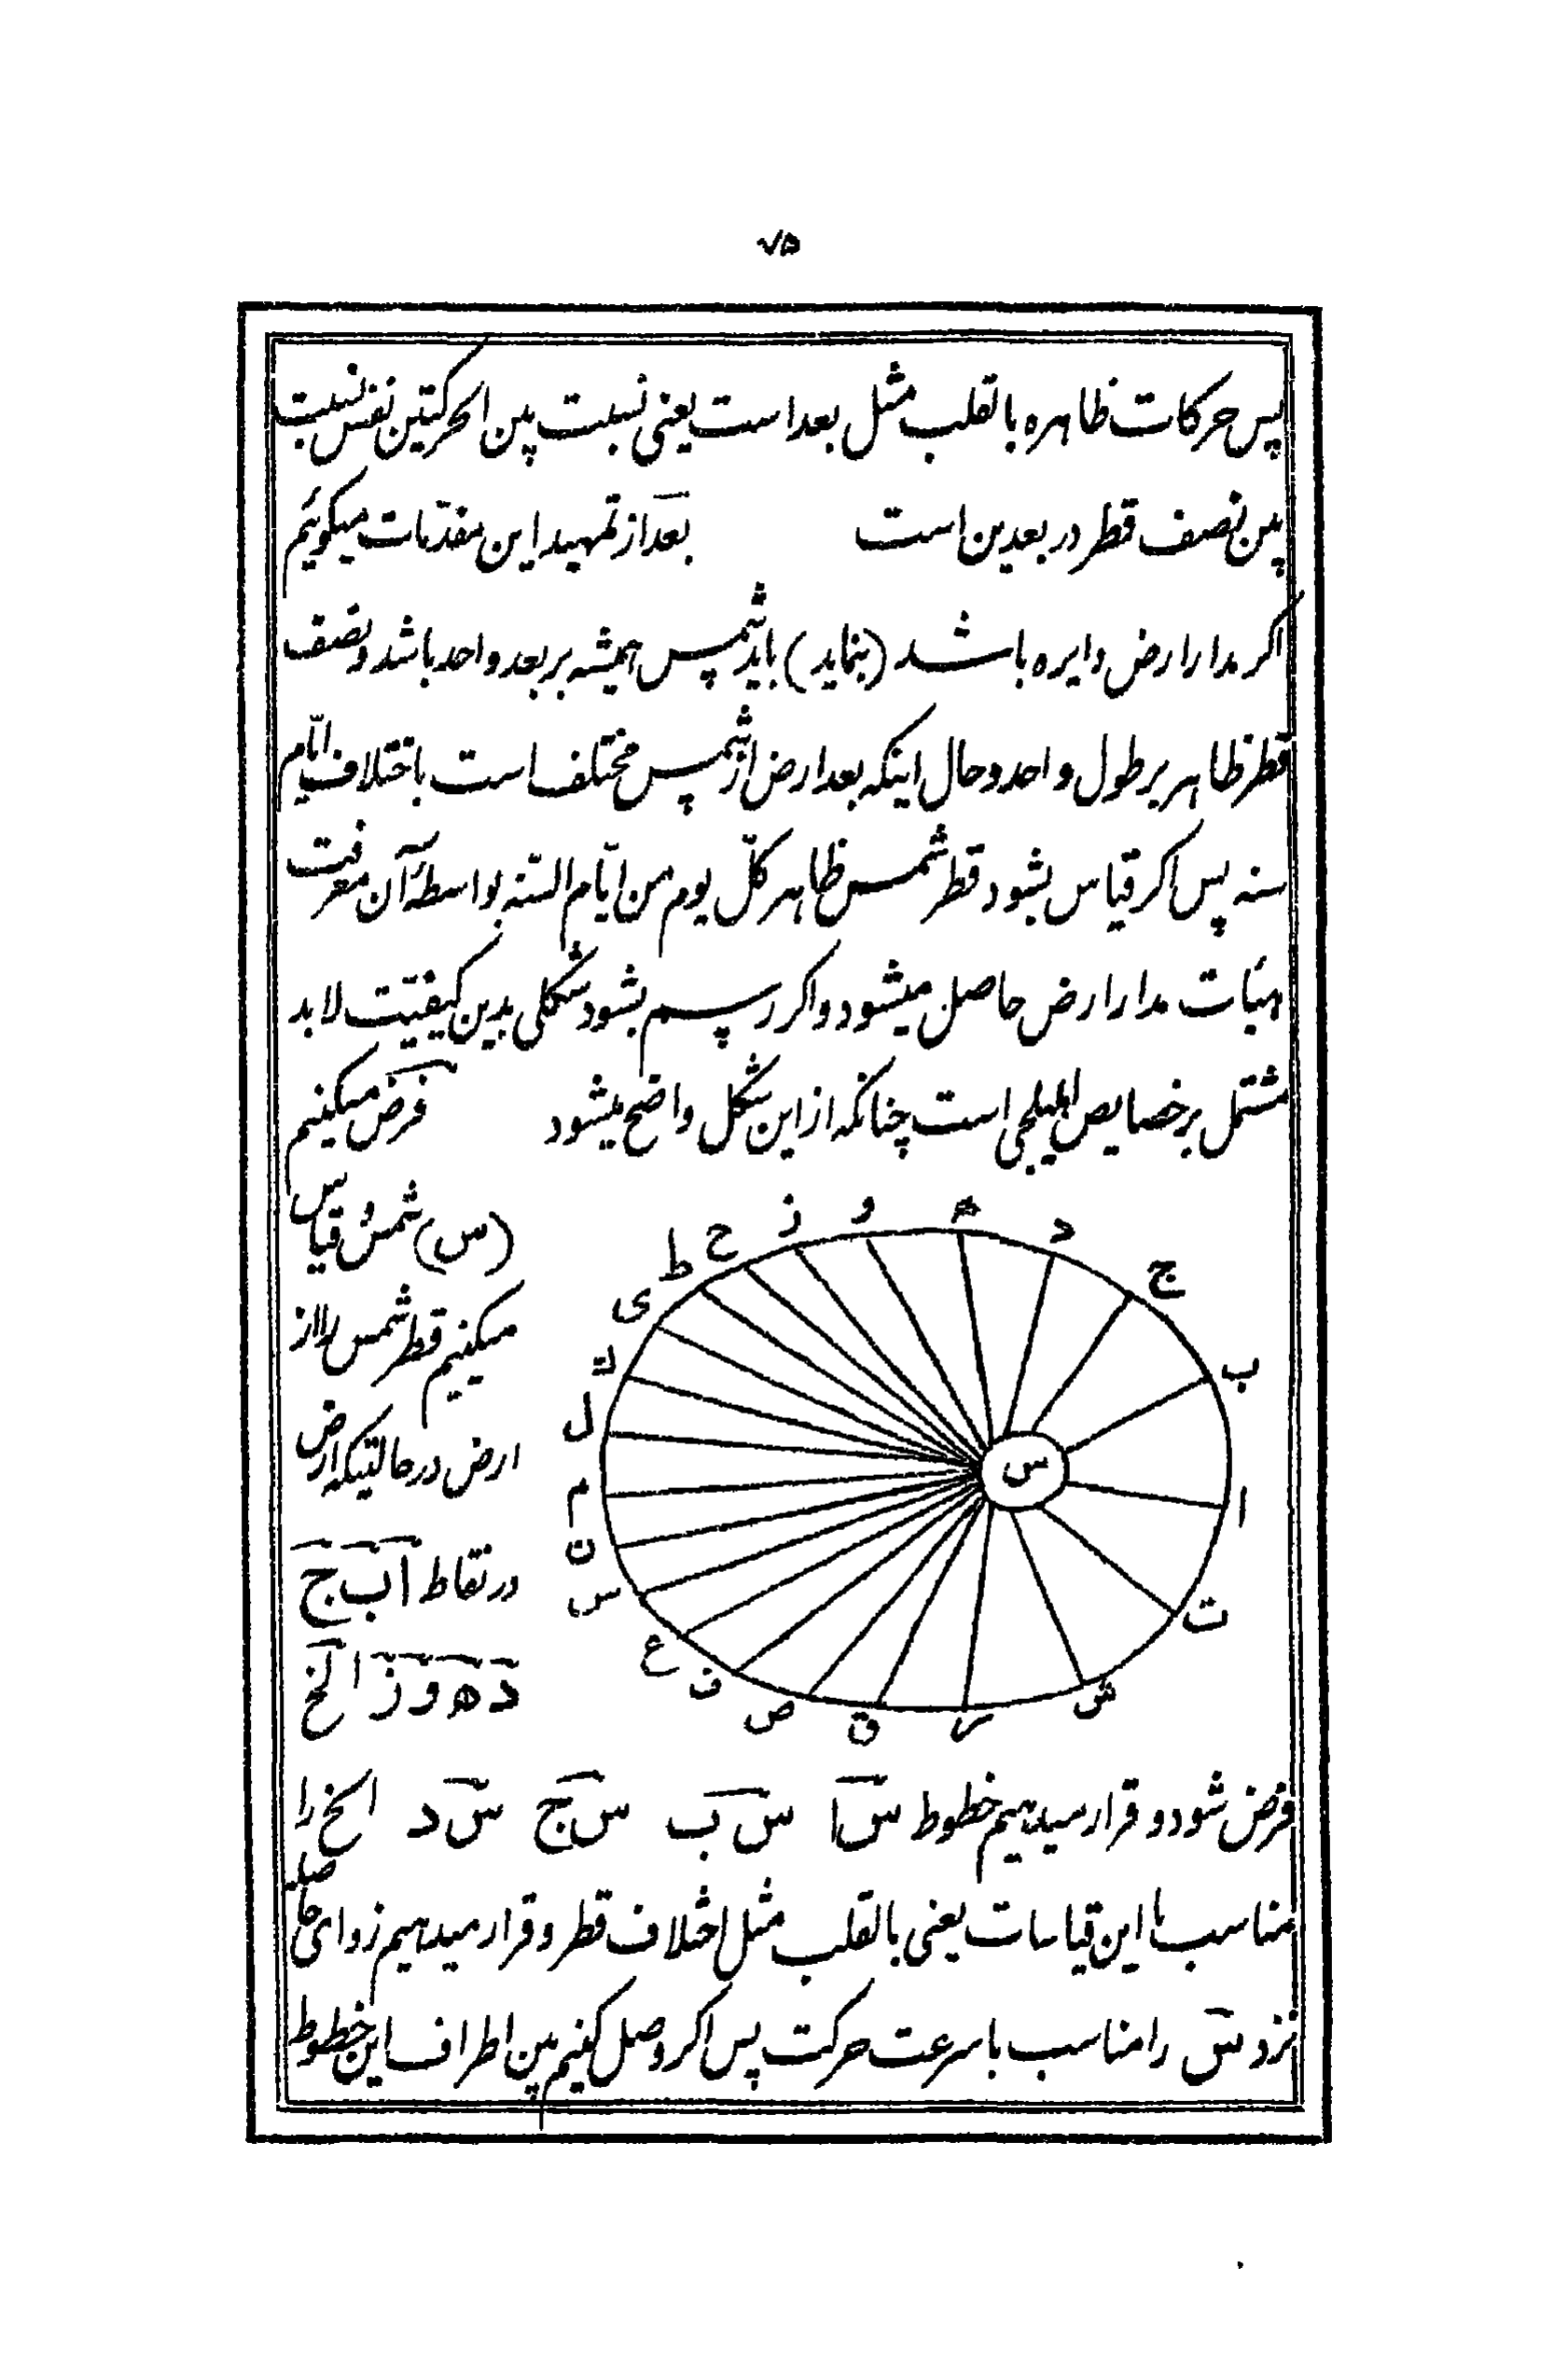 ۷۵
پس حرکات ظاهره بالقلب مثل بعد است یعنی نسبت بین الحرکتین نفس نسبت
بین نصف قطر در بعدین است بعد از تمهید این مقدّمات میکوئیم
اکر مدار ارض دایره باشد (بنماید) باید شمس همیشه بر بعد واحد باشد و نصف
قطر ظاهر بر طول واحد و حال اینکه بعد ارض از شمس مختلف است باختلاف ایّام
سنه پس اکر قیاس بشود قطر شمس ظاهر کلّ یوم من ایّام السّنه بواسطهٔ آن معرفت
هیئات مدار ارض حاصل میشود و اکر رسم بشود شکلی بدین کیفیّت لابد
مشتمل بر خصایص اهلیلجی است چنانکه از این شکل واضح میشود فرض میکنیم
(س) شمس و قیاس
میکنیم قطر شمس را از
ارض در حالتیکه ارض
در نقاط ا ب ج
د ه و ز الخ
ا ب ج د ه و ز ح ط ی ك ل م ن س ع ف ص ق ر ش ت
س
فرض شود و قرار میدهیم خطوط س ا س ب س ج س د الخ را
مناسب با این قیاسات یعنی بالقلب مثل اختلاف قطر و قرار میدهیم زوای حاصله
نزد س را مناسب با سرعت حرکت پس اکر وصل کنیم بین اطراف این خطوط